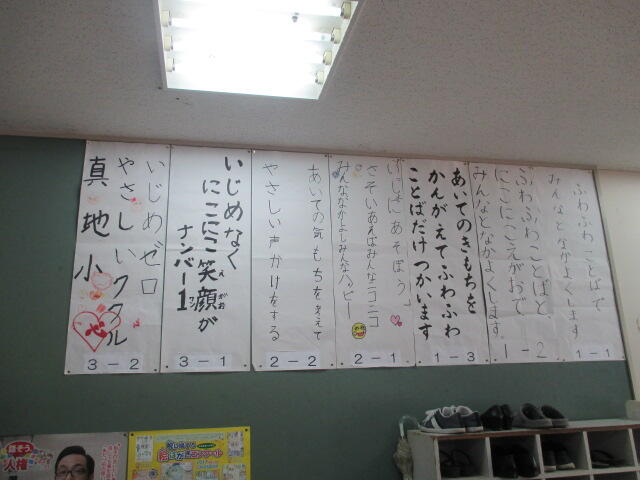 ふわふわことばで
みんなとなかよくします
1-1
ふわふわことばと
にこにこえがおで
みんなとなかよくします。
1-2
あいてのきもちを
かんがえてふわふわ
ことばだけつかいます
1-3
いっしょにあそぼう
さそいあえばみんなニコニコ
みんななかよしみんなハッピー
2-1
あいての気もちを考えて
やさしい声かけをする
2-2
いじめなく
にこにこ笑顔が
えがお
ナンバー1
ワン
3-1
いじめゼロ
やさしいクラス
真地小
3-2
人権